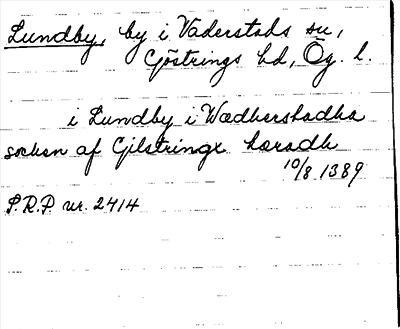 Lundby, by i Vaderstads sn,
Göstrings hd, Ög. l.
i Lundby i Wædherstadha
sochen af Gilstringx haradh
10/8 1389
S.R.P. nr. 2414